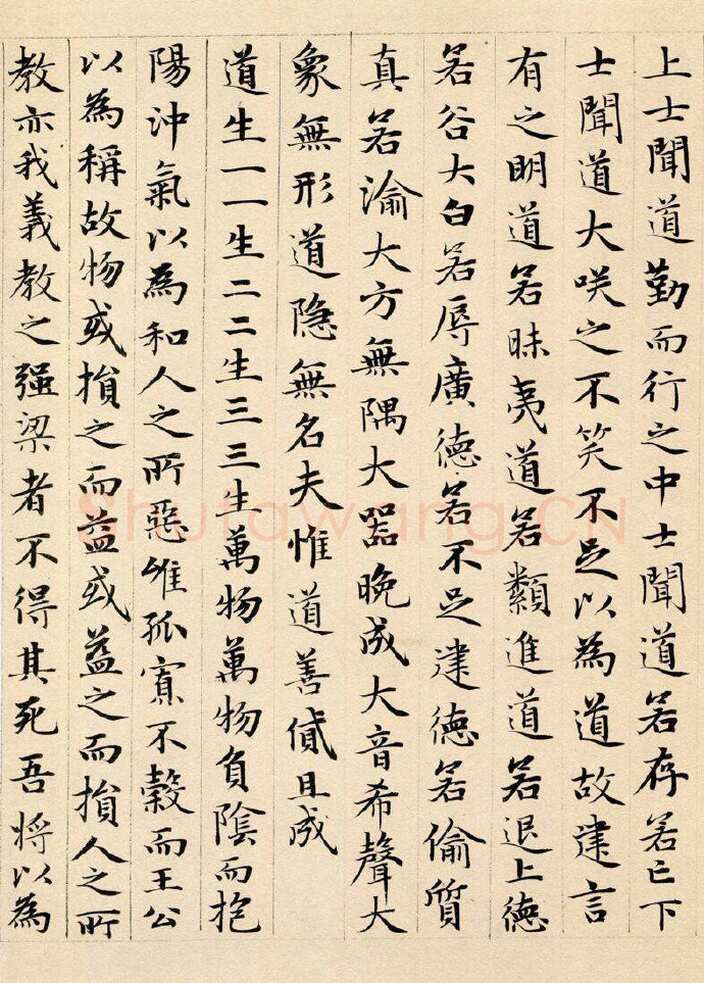 上士聞道勤而行之中士聞道若存若亡下
士聞道大咲之不笑不足以為道故建言
有之明道若昧夷道若類進道若退上德
若谷大白若辱廣德若不足建德若偷質
真若渝大方無隅大器晚成大音希聲大
象無形道隱無名夫惟道善貸且成
道生一一生二二生三三生萬物萬物負陰而抱
陽沖氣以為和人之所惡唯孤寡不穀而王公
以為稱故物或損之而益或益之而損人之所
教亦我義教之強梁者不得其死吾將以為
Shufawang.CN